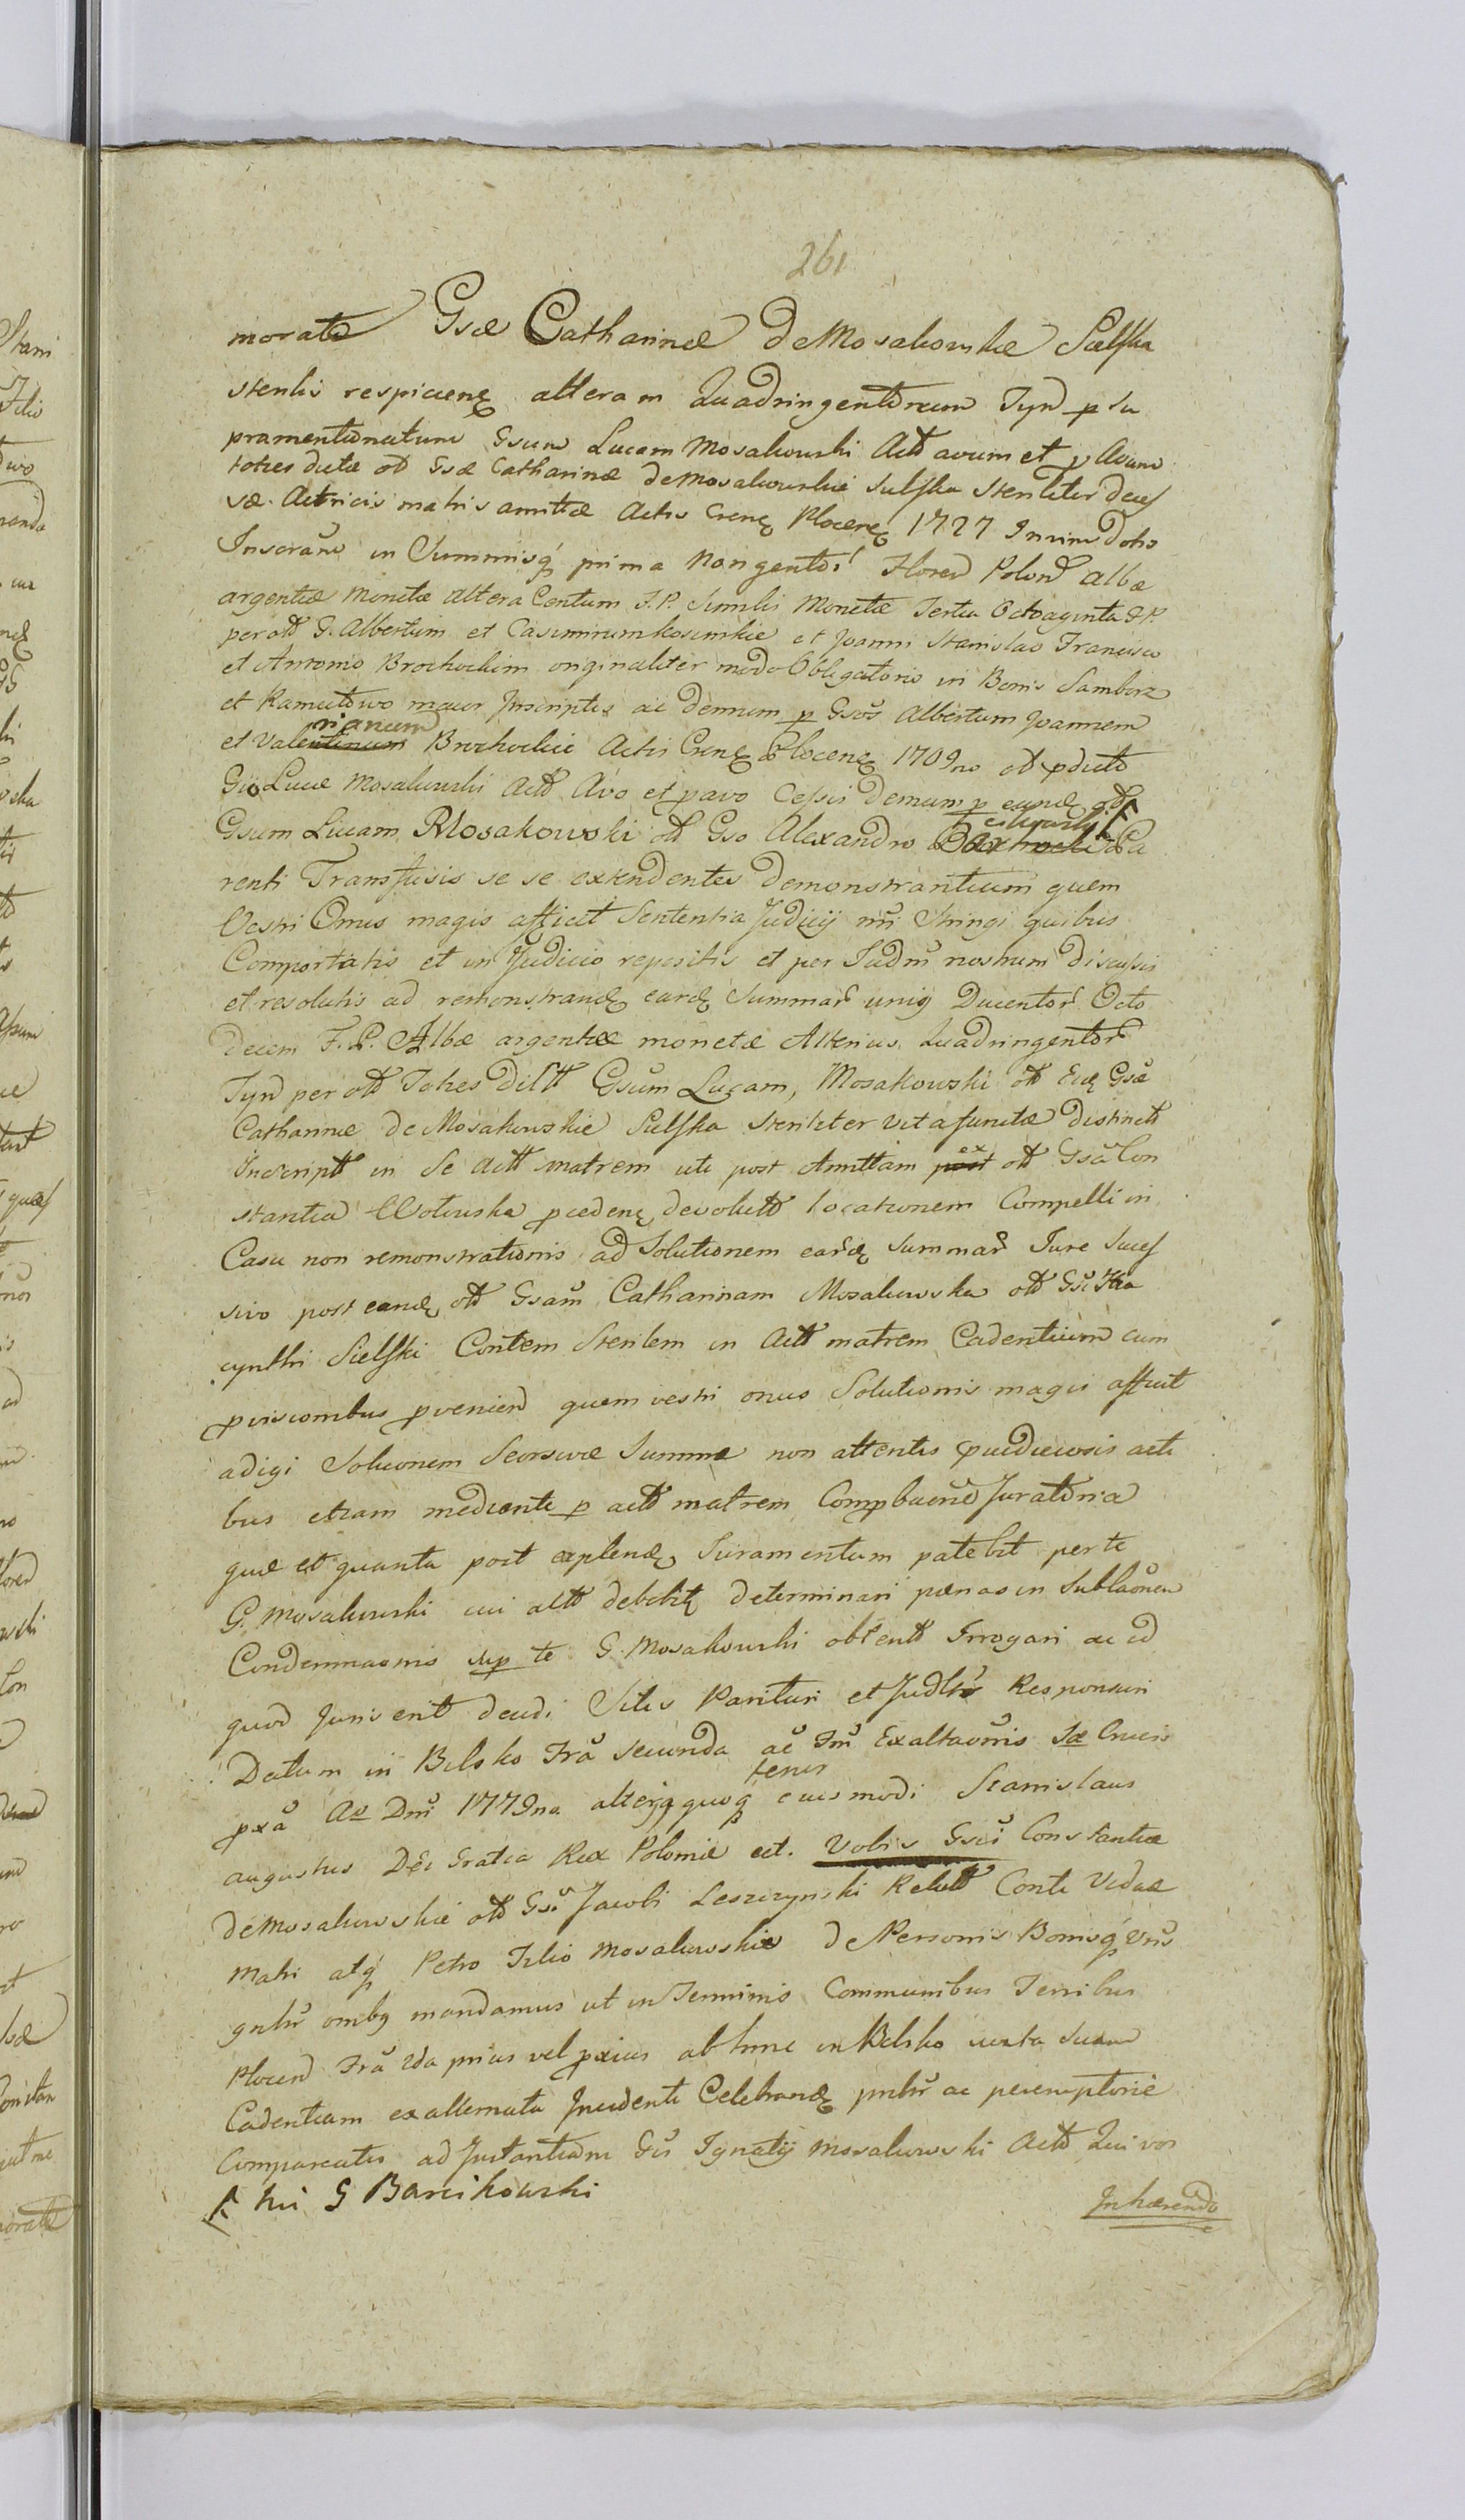 261
morate Gsæ Catharinæ de Mosakowskie Sielska
sterilis respiciens alteram Quadringentorum Tynf p su
pramentionatum Gsum Lucam Mosakowski Actt avum et p Avum
toties dictæ ott Gsæ Catharinæ de Mosakowskie Sielska Steriliter deces
sæ Actricis matris amittæ Actis Cren Plocen 1727 in vim Dotis
Inscram in Summisq prima Nongentor Floren Polon albæ
argenteæ Monetæ altera Centum F.P. Similis Monetæ Tertia Octoaginta F.P.
per ott G. Albertum et Casimirum Kosinskie et Joanni Stanislao Francisco
et Antonio Brochockim originaliter modo Obligatorio in Bonis Samborz
et Ramutowo maior Inscriptis ac demum p Gsos Albertum Joannem
et Valerianum Brochockie Actis Cren Plocen 1709no ott pdicto
Gso Lucæ Mosakowski Actt Avo et pavo Cessis demum p eund ott
Gsum Lucam Mosakowski ott Gso Alexandro Barcikowski Pa
renti Transfusis se se extendentes demonstrantium quem
Vestri Onus magis afficit Sententia Judicij nri Stringi quibus
Comportatis et in Judicio repositis et per Judm nostrum discussis
et resolutis ad remonstrand eard Summar unig Ducentor Octo
decem F.P. Albæ argenteæ monetæ Alterius Quadringentor
Tynf per ott Toties Ditt Gsum Lucam, Mosakowski ott Eid Gsæ
Catharinæ de Mosakowskie Sielska steriliter vita functæ distinct
Inscript in Se Actt matrem uti post Amittam ex ott Gsa Con
stantia Wotowska pcedens devolutt locationem Compelli in
Casu non remonstrationis ad Solutionem eard Summar Jure Succes
sivo post eand ott Gsam Catharinam Mosakowska ott Gsi Hia
cynthi Sielski Contem Sterilem in Actt matrem Cadentium cum
pvisionibus pvenien quem vestri onus Solutionis magis afficit
adigi Solucionem Seorsivæ Summæ non attentis pjudiciosis acti
bus etiam mediante p actt matrem Compbaone Juratoria
quæ et quanta post explend Juramentum patebit per te
G. Mosakowski cui actt debebit determinari pænas in Sublaonem
Condemnaonis sup te G. Mosakowski obtent Irrogari ac id
quod Juris erit decidi Sitis Parituri et Judltr Responsuri
Datum in Bilsko Fra secunda ac Fm Exaltaonis Sæ Crucis
pxa Ao Dni 1779na alterjq quoq tenor eius modi Stanislaus
augustus Dei Gratia Rex Poloniæ ect. Vobis Gsis Constantiæ
de Mosakowskie ott Gsi Jacobi Leszczynski Relictt Conti Viduæ
Matri atq Petro Filio Mosakowskie de Personis Bonisq Vris
gnlir ombg mandamus ut in Terminis Communibus Terribus
Plocen Fra 2da prius vel pxius ab hinc in Bilsko iuxta suam
Cadentiam ex alternata Incidenti Celebrand pntir ac peremptorie
Compareatis ad Instantiam Gsi Ignatij Mosakowski Actt Qui vos
hui G Barcikowski
Inhærendo